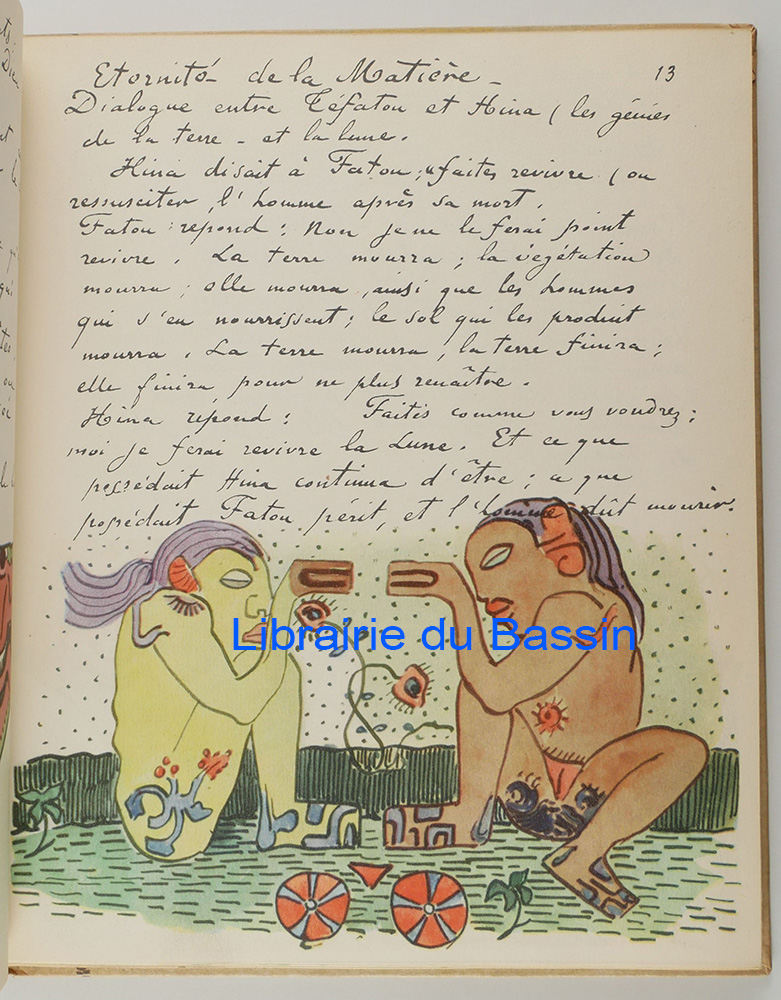 Eternité de la Matière - 13
Dialogue entre Téfatou et Hina (les génies
de la terre - et la lune.
Hina disait à Fatou; "faites revivre (ou
ressusciter, l'homme après sa mort.
Fatou répond: Non je ne le ferai point
revivre. La terre mourra; la végétation
mourra; elle mourra, ainsi que les hommes
qui s'en nourrissent; le sol qui les produit
mourra. La terre mourra, la terre finira;
elle finira pour ne plus renaître.
Hina répond: Faites comme vous voudrez;
moi je ferai revivre la Lune. Et ce que
possédait Hina continua d'être; ce que
possédait Fatou périt, et l'homme dût mourir.
Librairie du Bassin